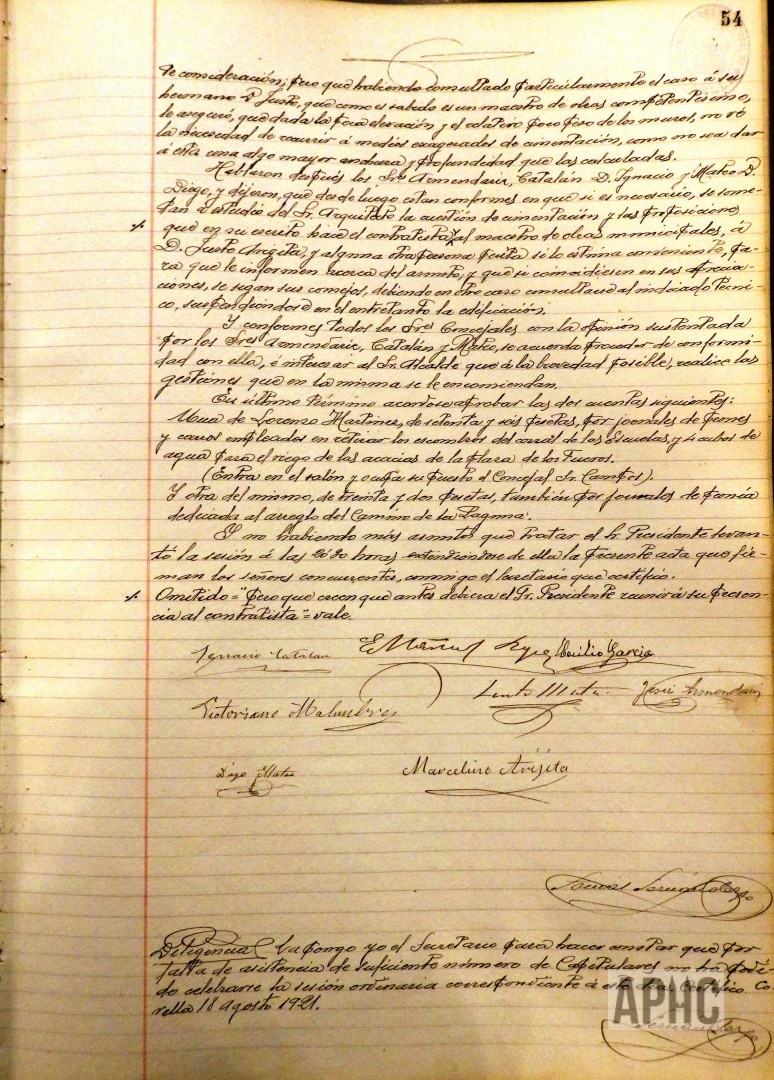 54
de consideración; pero que habiendo consultado particularmente el caso á su
hermano D. Justo, que como es sabido es un maestro de obras competentísimo,
le aseguró, que dada la poca elevación y el relativo poco peso de los muros, no vé
la necesidad de recurrir á medios exagerados de cimentación, como no sea dar
á esta una algo mayor anchura y profundidad que las calculadas.
Hablaron después los Sres Armendariz, Catalán D. Ignacio y Mateo D.
Diego, y dijeron, que desde luego estan conformes en que si es necesario, se some-
tan á estudio del Sr. Arquitecto la cuestión de cimentación y las proposiciones
que en su escrito hace el contratista, al maestro de obras municipales, á
D. Justo Arigita, y alguna otra persona perita si lo estima conveniente, pa-
ra que le informen acerca del asunto, y que si coincidiesen en sus aprecia-
ciones, se sigan sus consejos, debiendo en otro caso consultarse al indicado técni-
co, suspendiéndose en el entretanto la edificación.
Y conformes todos los Sres Concejales con la opinión sustentada
por los Sres Armendariz, Catalán y Mateo, se acuerda proceder de conformi-
dad con ella, é interesar al Sr. Alcalde que á la brevedad posible, realice las
gestiones que en la misma se le encomiendan.
En último término acordose aprobar las dos cuentas siguientes:
Una de Lorenzo Martinez, de setenta y seis pesetas, por jornales de peones
y carros empleados en retirar los escombros del corral de las Escuelas, y 4 cubos de
agua para el riego de las acacias de la plaza de los Fueros.
(Entra en el salón y ocupa su puesto el Concejal Sr. Campos).
Y otra del mismo, de treinta y dos pesetas, también por jornales de peonía
dedicada al arreglo del Camino de la Laguna.
Y no habiendo más asuntos que tratar el Sr. Presidente levan-
tó la sesión á las horas extendiéndose de ella la presente acta que fir-
man los señores concurrentes, conmigo el Secretario que certifico.
Omitido = "Pero que creen que antes debiera el Sr. Presidente reunir á su presen-
cia al contratista" = vale.
Ignacio Catalan
Cecilio Garcia
Mateo
Jesús Armendariz
Victoriano Malumbres
Diego Mateo
Marcelino Arigita
Diligencia La pongo yo el Secretario para hacer constar que por
falta de asistencia de suficiente número de Capitulares no ha podi-
do celebrarse la sesión ordinaria correspondiente á este día. Certifico. Co-
rella 18 agosto 1921.
APHC